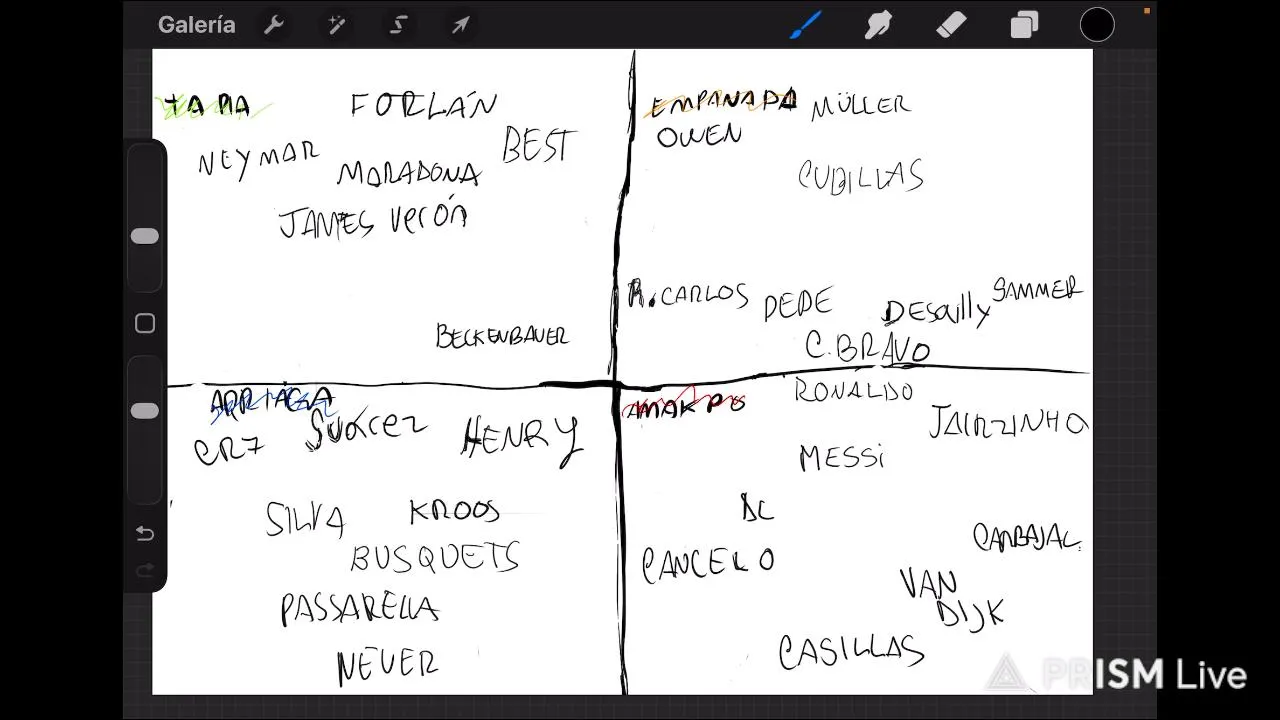 Galería
TAPIA
FORLÁN
NEYMAR
MARADONA
BEST
JAMES Verón
BECKENBAUER
EMPANADA
MÜLLER
OWEN
CUBILLAS
R. CARLOS
PEPE
Desailly
SAMMER
C. BRAVO
ARRIAGA
CR7
Suárez
HENRY
SILVA
KROOS
BUSQUETS
PASSARELLA
NEUER
AMAKPO
RONALDO
JAIRZINHO
MESSI
CANCELO
CARBAJAL
VAN
DIJK
CASILLAS
PRISM Live